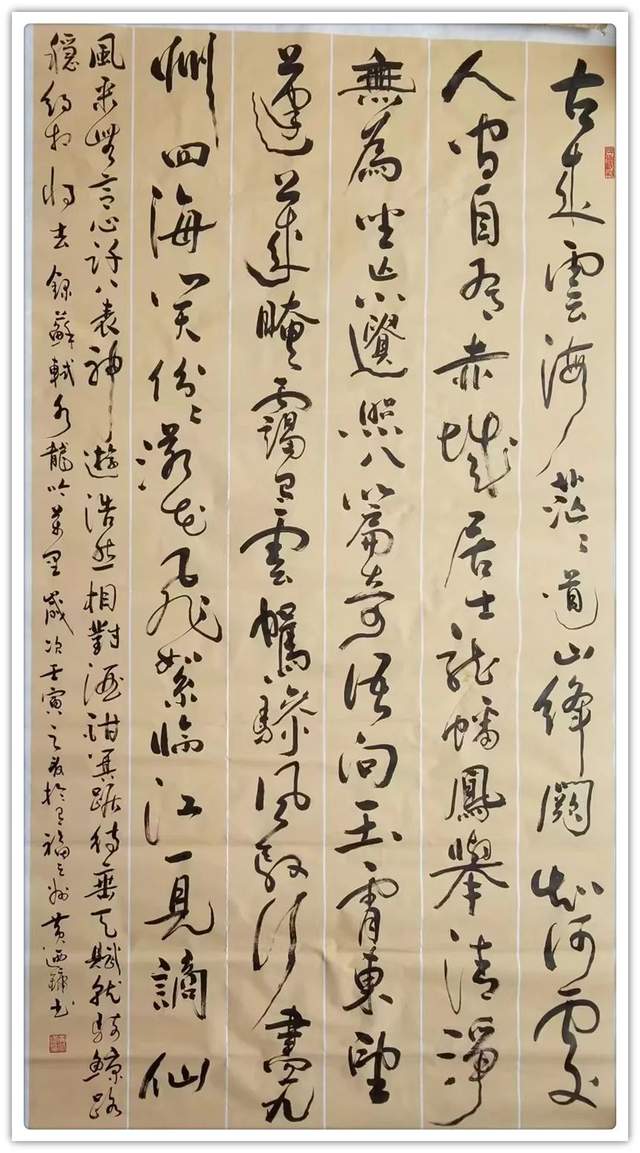 古來雲海茫茫道山絳闕知何處
人間自有赤城居士龍蟠鳳舉清淨
無為坐忘遺照八篇奇語向玉霄東望
蓬萊晻靄有雲駕驂風馭行盡九
州四海笑紛紛落花飛絮臨江一見謫仙
風采無言心許八表神遊浩然相對酒酣箕踞待垂天賦就騎鯨路
穩約相將去 錄蘇軾水龍吟 歲次壬寅之夏於有福之州 黃書